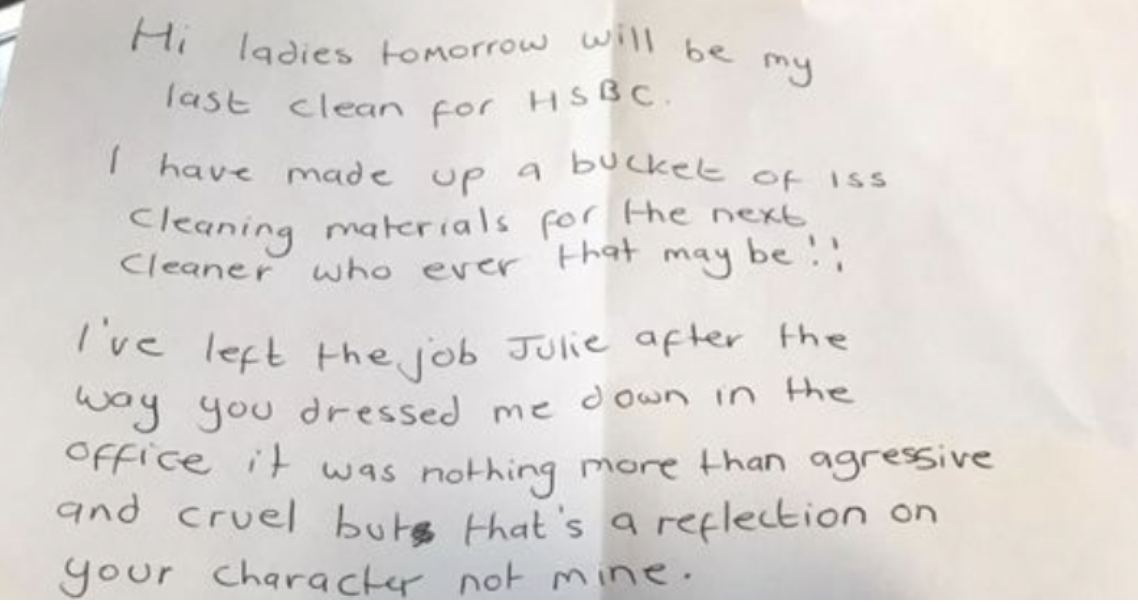 Hi ladies tomorrow will be my
last clean for HSBC.
I have made up a bucket of iss
cleaning materials for the next
cleaner who ever that may be!!
I've left the job Julie after the
way you dressed me down in the
office it was nothing more than agressive
and cruel but that's a reflection on
your character not mine.